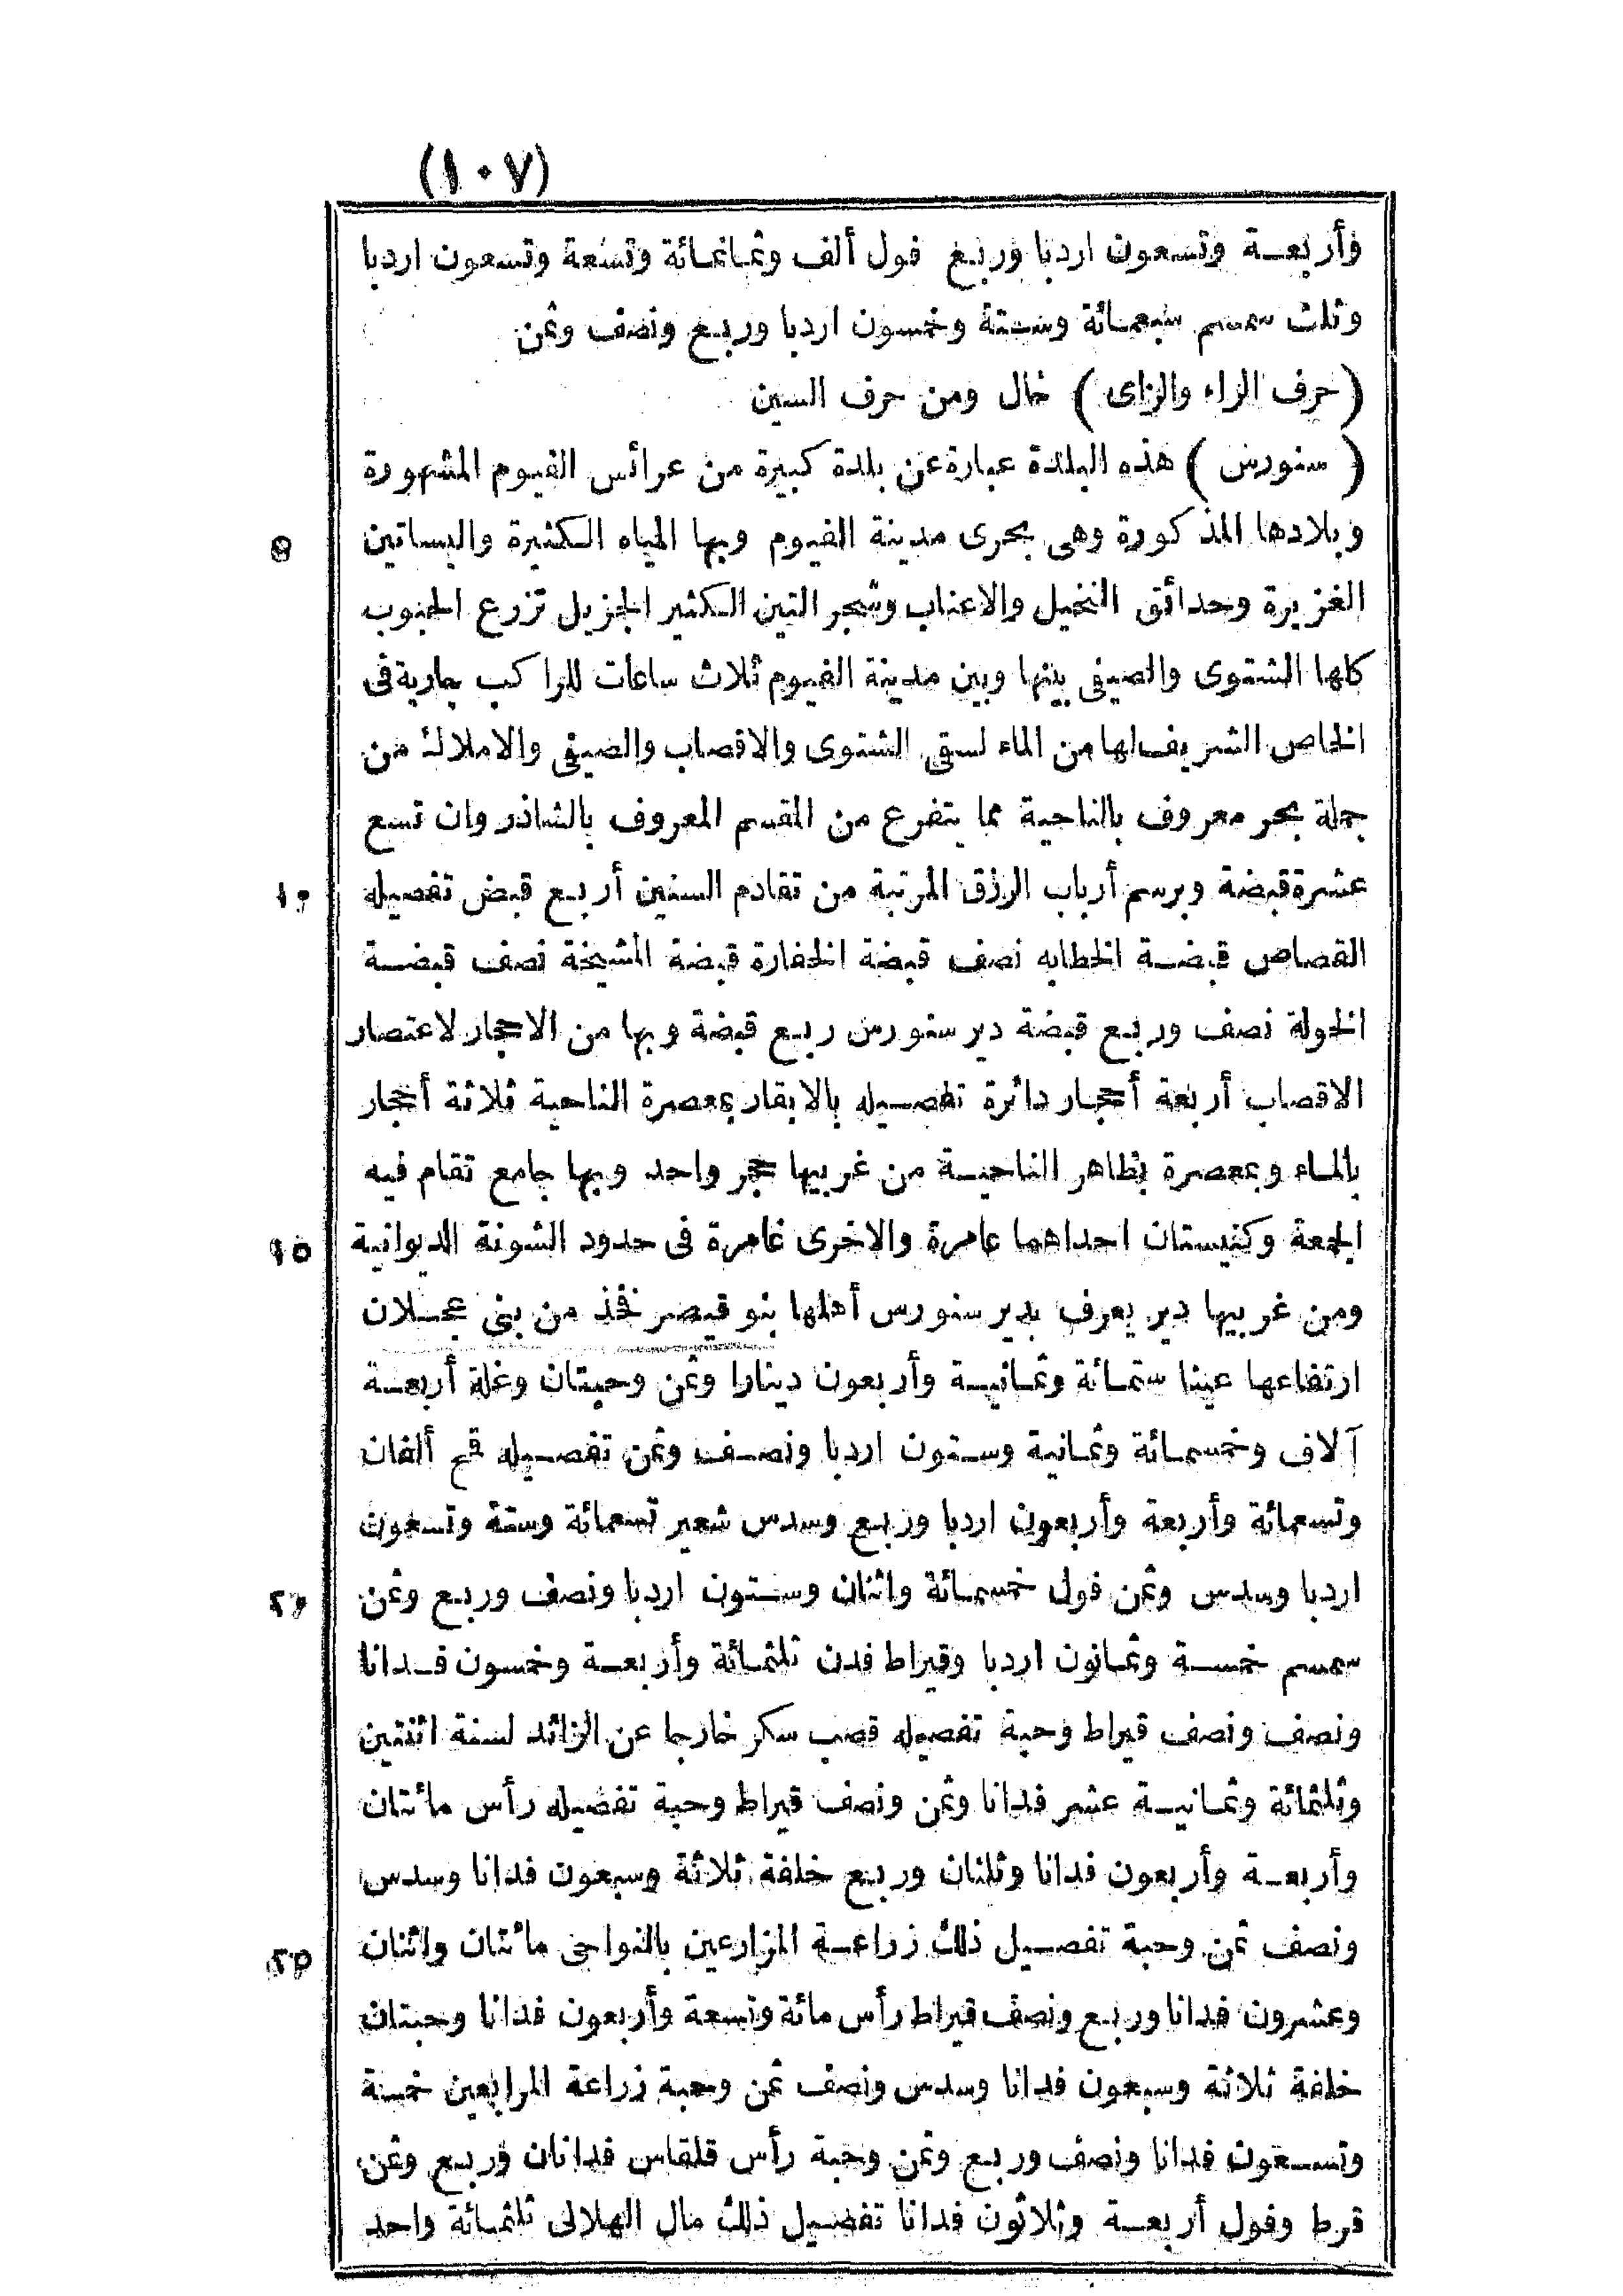 (١٠٧)
وأربعة وتسعون اردبا وربع فول ألف وثمانمائة وتسعة وتسعون اردبا
وثلث سمسم سبعمائة وستة وخمسون اردبا وربع ونصف وثمن
(حرف الراء والزاى) خال ومن حرف السين
(سنورس) هذه البلدة عبارة عن بلدة كبيرة من عرائس الفيوم المشهورة
وبلادها المذكورة وهى بحرى مدينة الفيوم وبها المياه الكثيرة والبساتين
٥
الغزيرة وحدائق النخيل والاعناب وشجر التين الكثير الجزيل تزرع الحبوب
كلها الشتوى والصيفى بينها وبين مدينة الفيوم ثلاث ساعات للراكب جارية فى
الخاص الشريف لها من الماء لسقى الشتوى والاقصاب والصيفى والاملاك من
جملة بحر معروف بالناحية مما يتفرع من المقسم المعروف بالشاذروان تسع
عشرة قبضة وبرسم أرباب الرزق المرتبة من تقادم السنين أربع قبض تفصيله
١٠
القصاص قبضة الخطابه نصف قبضة الخفارة قبضة المشيخة نصف قبضة
الخولة نصف وربع قبضة دير سنورس ربع قبضة وبها من الاحجار لاعتصار
الاقصاب أربعة أحجار دائرة تفصيله بالابقار بمعصرة الناحية ثلاثة أحجار
بالماء وبمعصرة بظاهر الناحية من غربيها حجر واحد وبها جامع تقام فيه
الجمعة وكنيستان احداهما عامرة والاخرى غامرة فى حدود الشونة الديوانية
١٥
ومن غربيها دير يعرف بدير سنورس أهلها بنو قيصر فخذ من بنى عجلان
ارتفاعها عينا ستمائة وثمانية وأربعون دينارا وثمن وحبتان وغلة أربعة
آلاف وخمسمائة وثمانية وستون اردبا ونصف وثمن تفصيله قمح ألفان
وتسعمائة وأربعة وأربعون اردبا وربع وسدس شعير تسعمائة وستة وتسعون
اردبا وسدس وثمن فول خمسمائة واثنان وستون اردبا ونصف وربع وثمن
٢٠
سمسم خمسة وثمانون اردبا وقيراط فدن ثلثمائة وأربعة وخمسون فدانا
ونصف ونصف قيراط وحبة تفصيله قصب سكر خارجا عن الزائد لسنة اثنتين
وثلثمائة وثمانية عشر فدانا وثمن ونصف قيراط وحبة تفصيله رأس مائتان
وأربعة وأربعون فدانا وثلثان وربع خلفة ثلاثة وسبعون فدانا وسدس
ونصف ثمن وحبة تفصيل ذلك زراعة المزارعين بالنواحى مائتان واثنان
٢٥
وعشرون فدانا وربع ونصف قيراط رأس مائة وتسعة وأربعون فدانا وحبتان
خلفة ثلاثة وسبعون فدانا وسدس ونصف ثمن وحبة زراعة المرابعين خمسة
وتسعون فدانا ونصف وربع وثمن وحبة رأس قلقاس فدانان وربع وثمن
قرط وفول أربعة وثلاثون فدانا تفصيل ذلك مال الهلالى ثلثمائة واحد